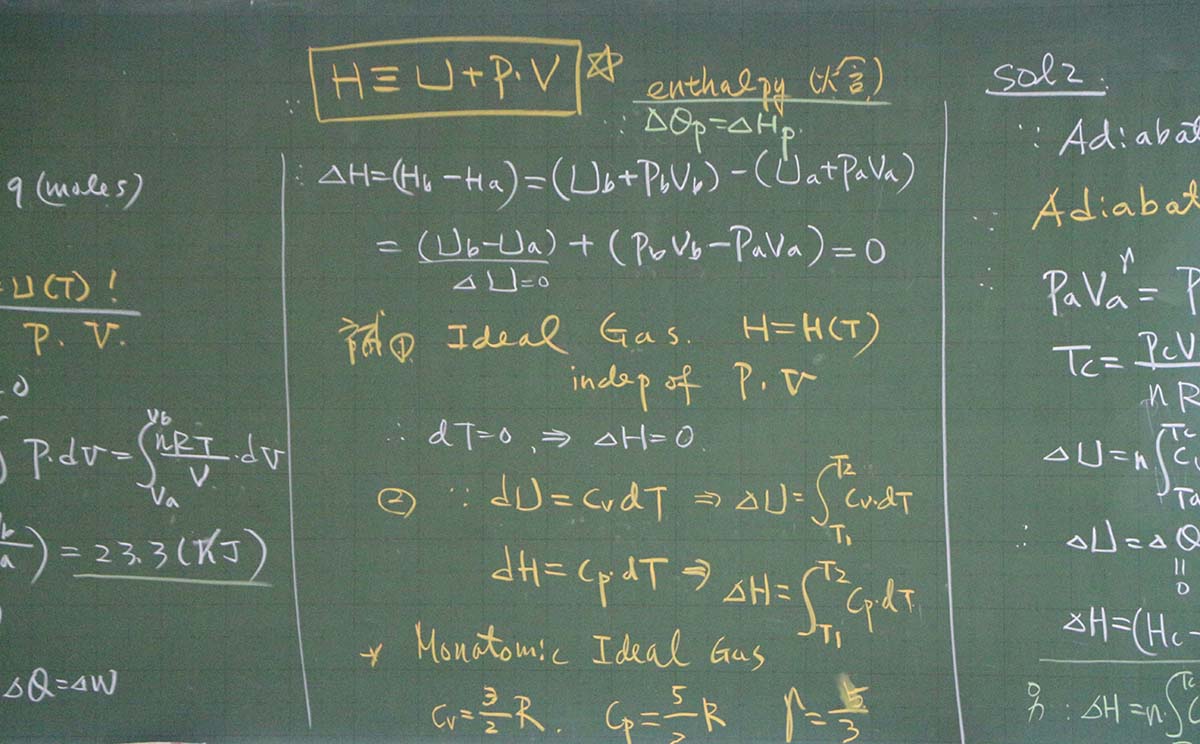 q (moles)
= U(T) !
P. V.
0
∫ P.dV = ∫_{Va}^{Vb} nRT/V · dV
) = 23.3 (KJ)
ΔQ = ΔW
H ≡ U + P.V ☆
enthalpy (火含)
∵ ΔQp = ΔHp
∴ ΔH = (Hb - Ha) = (Ub + PbVb) - (Ua + PaVa)
= (Ub - Ua) + (PbVb - PaVa) = 0
ΔU = 0
① Ideal Gas. H = H(T)
indep of P. V
∴ dT = 0, ⇒ ΔH = 0.
② ∵ dU = CvdT ⇒ ΔU = ∫_{T1}^{T2} Cv.dT
dH = Cp.dT ⇒ ΔH = ∫_{T1}^{T2} Cp.dT
* Monatomic Ideal Gas
Cv = 3/2 R. Cp = 5/2 R γ = 5/3
sol 2.
∵ Adiabat
∴ Adiabat
∴ PaVa^γ = P
Tc = PcV / nR
ΔU = n ∫_{Ta}^{Tc} Cv
∴ ΔU = ΔQ
॥
0
ΔH = (Hc -
: ΔH = n.∫ C